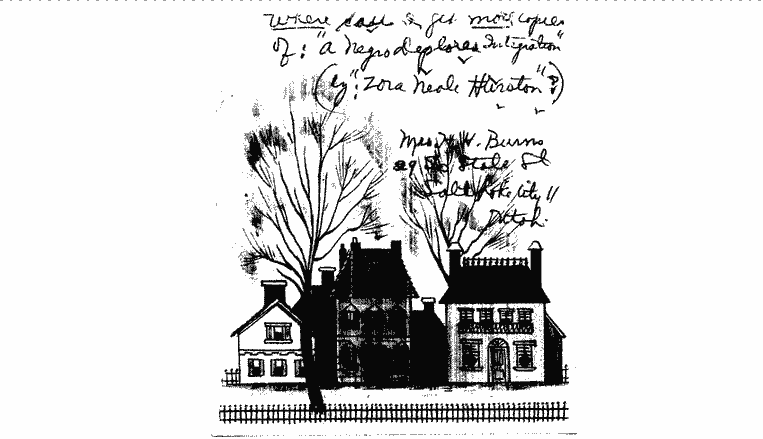 Where can I get more copies
of: "a Negro deplores Intigration"
(by: "Zora Neale Hurston"?)
Mrs. H. V. Burns
So State St
Salt Lake City 11
Utah.